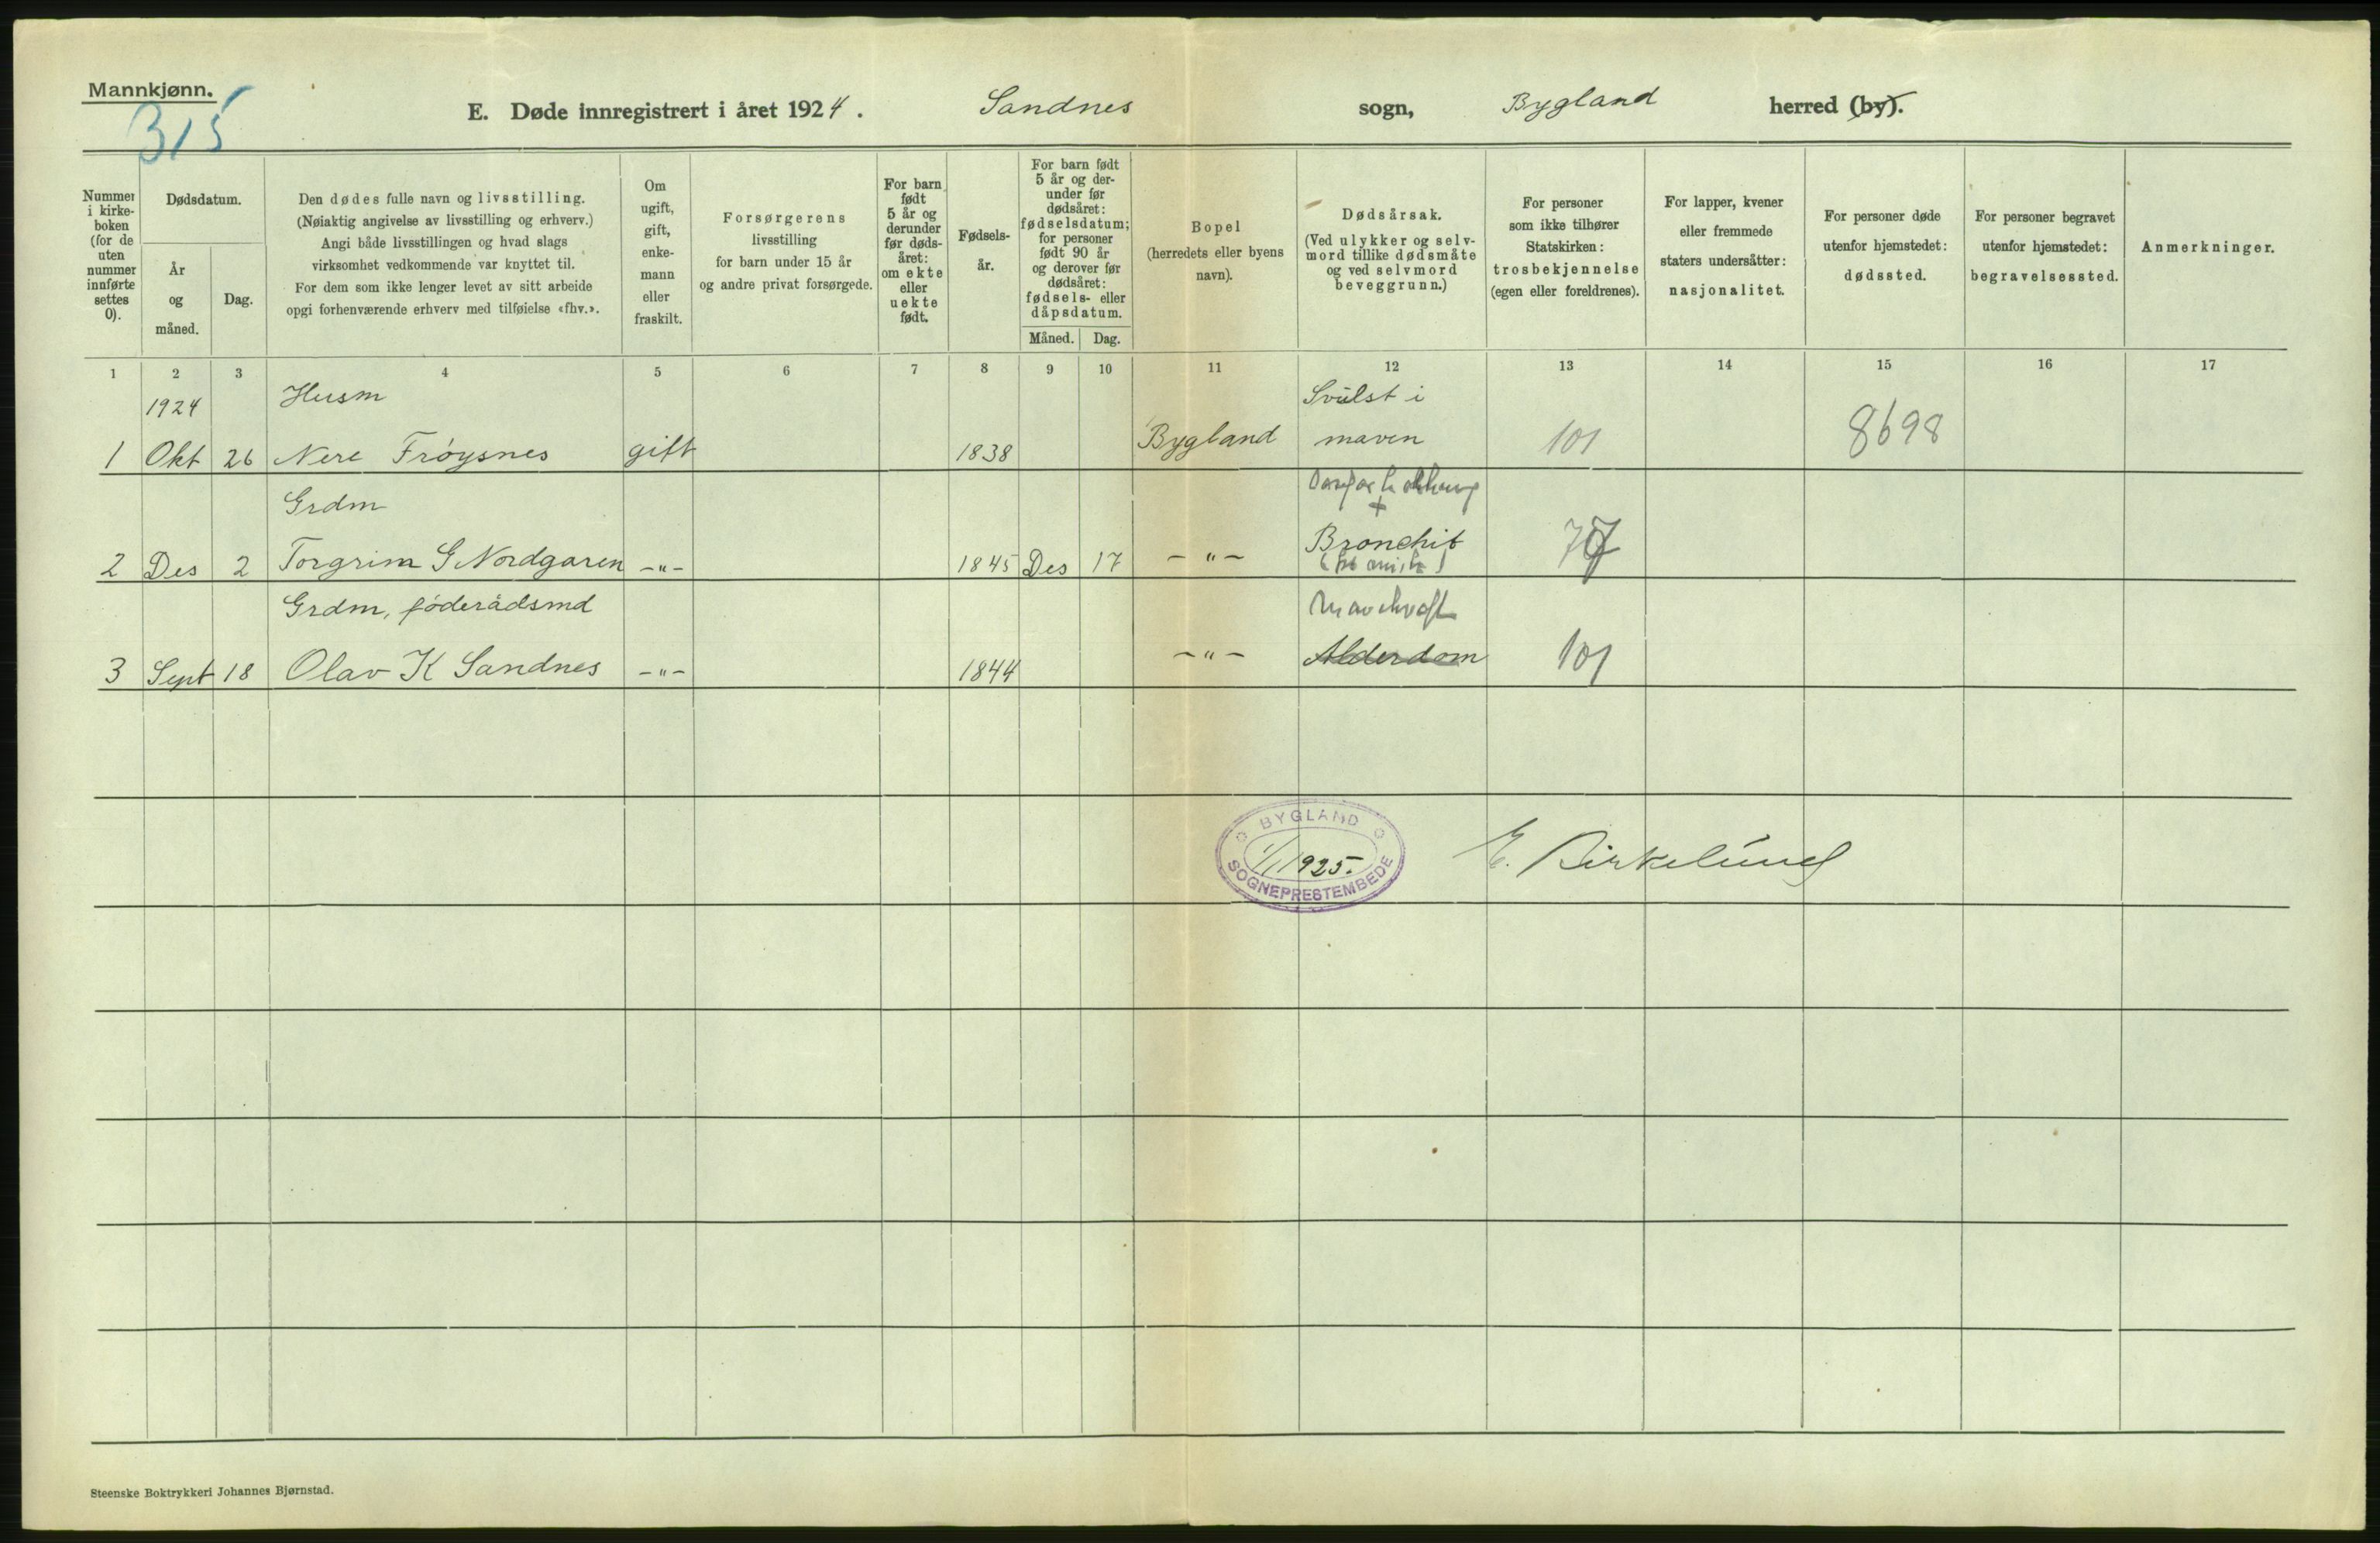 Mannkjønn.
315
E. Døde innregistrert i året 1924. Sandnes sogn, Bygland herred (by).
Nummer i kirke-boken (for de uten nummer innførte settes 0).
Dødsdatum.
År og måned.
Dag.
Den dødes fulle navn og livsstilling.
(Nøiaktig angivelse av livsstilling og erhverv.)
Angi både livsstillingen og hvad slags
virksomhet vedkommende var knyttet til.
For dem som ikke lenger levet av sitt arbeide
opgi forhenværende erhverv med tilføielse «fhv.».
Om ugift, gift, enke-mann eller fraskilt.
Forsørgerens
livsstilling
for barn under 15 år
og andre privat forsørgede.
For barn født 5 år og derunder før døds-året: om ekte eller uekte født.
Fødsels-år.
For barn født 5 år og der-under før dødsåret: fødselsdatum; for personer født 90 år og derover før dødsåret: fødsels- eller dåpsdatum.
Måned. Dag.
Bopel
(herredets eller byens
navn).
Dødsårsak.
(Ved ulykker og selv-
mord tillike dødsmåte
og ved selvmord
beveggrunn.)
For personer
som ikke tilhører
Statskirken:
trosbekjennelse
(egen eller foreldrenes).
For lapper, kvener
eller fremmede
staters undersåtter:
nasjonalitet.
For personer døde
utenfor hjemstedet:
dødssted.
For personer begravet
utenfor hjemstedet:
begravelsessted.
Anmerkninger.
1 2 3 4 5 6 7 8 9 10 11 12 13 14 15 16 17
1924 Husm Svulst i
1 Okt 26 Nere Frøysnes gift 1838 Bygland maven 101 8698
Grdm
2 Des 2 Torgrim G Nordgaren -"- 1845 Des 17 -"- Bronchit
Grdm, føderådsmd
3 Sept 18 Olav K Sandnes -"- 1844 -"- Alderdom 101
BYGLAND
1/1 1925.
SOGNEPRESTEMBEDE
E. Birkelund
Steenske Boktrykkeri Johannes Bjørnstad.